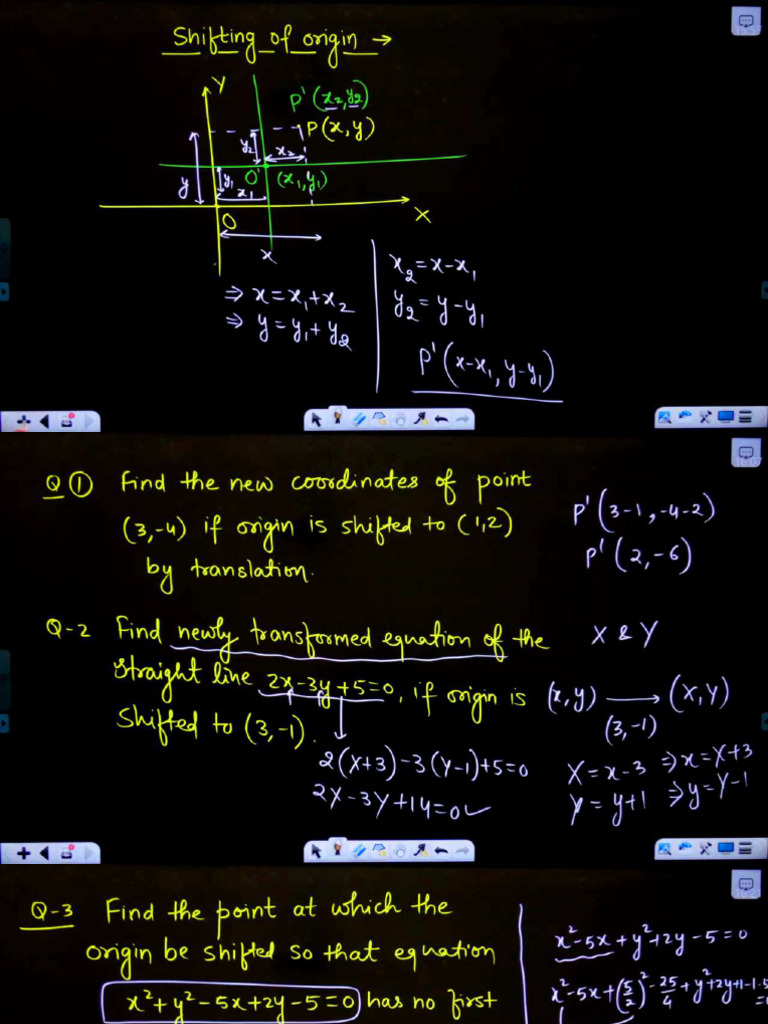 Shifting of origin →
Y
P'(x₂,y₂)
P(x,y)
y₂
x₂
y
y₁
O'
(x₁,y₁)
x₁
O
X
x
⇒ x = x₁+x₂
⇒ y = y₁+y₂
x₂ = x-x₁
y₂ = y-y₁
P'(x-x₁, y-y₁)
Q ① Find the new coordinates of point
(3,-4) if origin is shifted to (1,2)
by translation.
P'(3-1, -4-2)
P'(2,-6)
Q-2 Find newly transformed equation of the
straight line 2x-3y+5=0, if origin is
shifted to (3,-1).
X & Y
(x,y) ⟶ (X,Y)
(3,-1)
2(X+3)-3(Y-1)+5=0
2X-3Y+14=0✓
X = x-3 ⇒ x = X+3
Y = y+1 ⇒ y = Y-1
Q-3 Find the point at which the
origin be shifted so that equation
x²+y²-5x+2y-5=0 has no first
x²-5x+y²+2y-5=0
x²-5x+(5/2)²-25/4+y²+2y+1-1-5